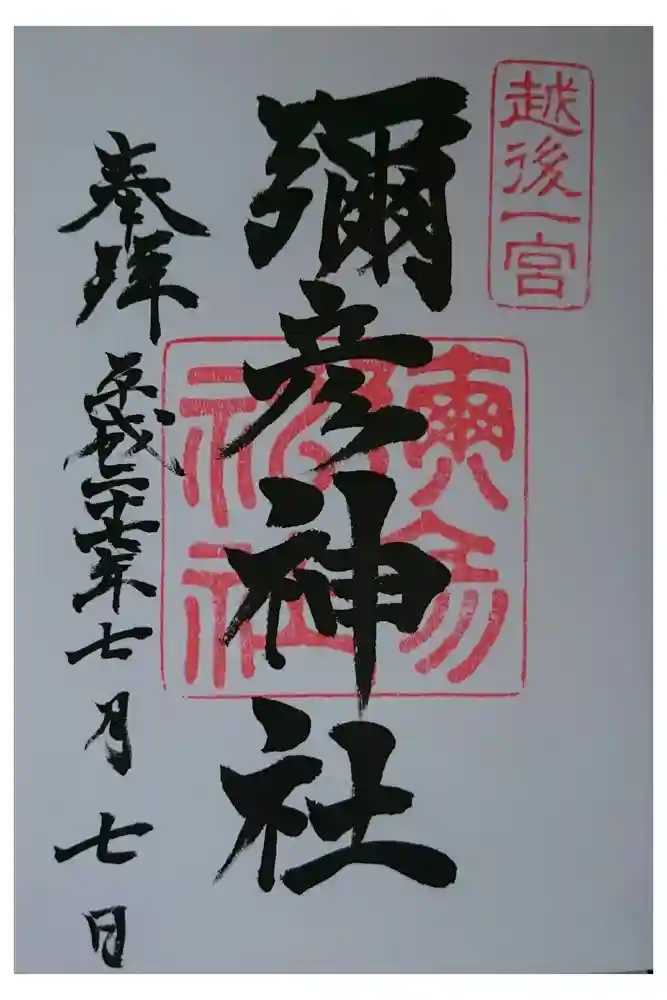 越後一宮
彌彦神社
奉拝
平成二十七年七月七日